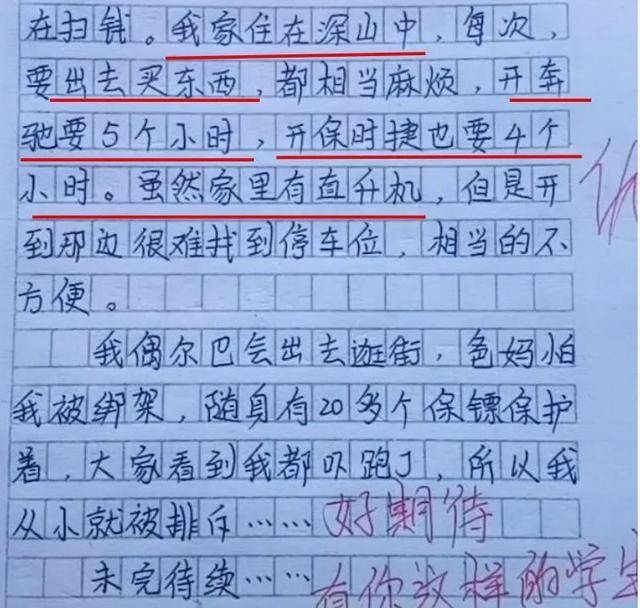 在扫钱。我家住在深山中，每次，
要出去买东西，都相当麻烦，开奔
驰要5个小时，开保时捷也要4个
小时。虽然家里有直升机，但是开
到那边很难找到停车位，相当的不
方便。
我偶尔巴会出去逛街，爸妈怕
我被绑架，随身有20多个保镖保护
着，大家看到我都吓跑了，所以我
从小就被排斥……好期待
未完待续……有你这样的学生